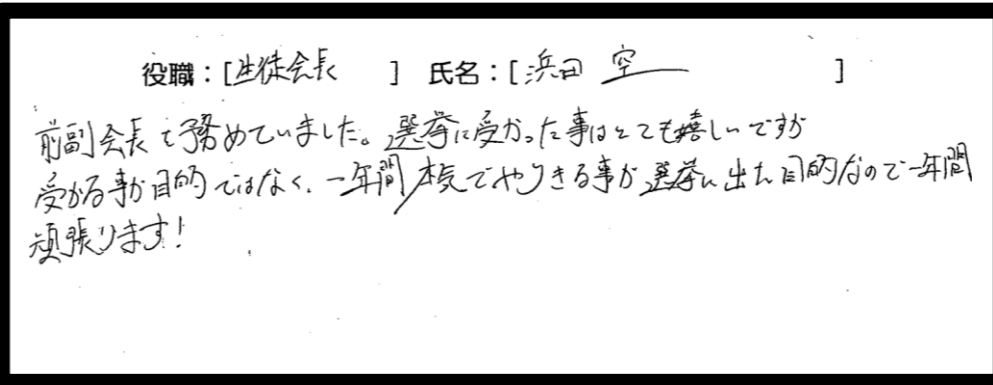 役職：[生徒会長　] 氏名：[浜田 空　]
前副会長を務めていました。選挙に受かった事はとても嬉しいですが
受かる事が目的ではなく、一年間本気でやりきる事が選挙に出た目的なので一年間
頑張ります！